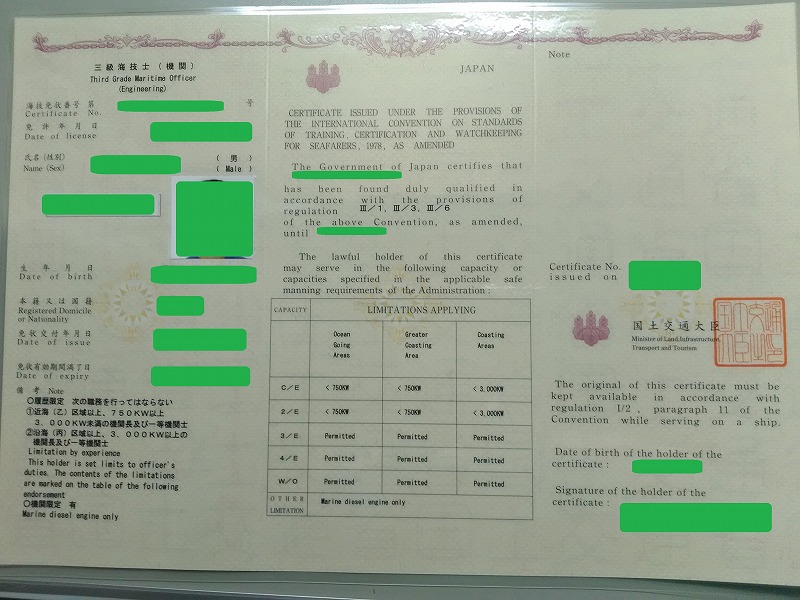 三級海技士(機関)
Third Grade Maritime Officer
(Engineering)
海技免状番号 第 号
Certificate No.
免許年月日
Date of license
氏名(性別) ( 男 )
Name (Sex) ( Male )
生年月日
Date of birth
本籍又は国籍
Registered Domicile
or Nationality
免状交付年月日
Date of issue
免状有効期間満了日
Date of expiry
備考 Note
○履歴限定 次の職務を行ってはならない
①近海(乙)区域以上、750KW以上
3,000KW未満の機関長及び一等機関士
②沿海(丙)区域以上、3,000KW以上の
機関長及び一等機関士
Limitation by experience
This holder is set limits to officer's
duties. The contents of the limitations
are marked on the table of the following
endorsement
○機関限定 有
Marine diesel engine only
JAPAN
CERTIFICATE ISSUED UNDER THE PROVISIONS OF
THE INTERNATIONAL CONVENTION ON STANDARDS
OF TRAINING, CERTIFICATION AND WATCHKEEPING
FOR SEAFARERS, 1978, AS AMENDED
The Government of Japan certifies that
has been found duly qualified in
accordance with the provisions of
regulation Ⅲ/1, Ⅲ/3, Ⅲ/6
of the above Convention, as amended,
until
The lawful holder of this certificate
may serve in the following capacity or
capacities specified in the applicable safe
manning requirements of the Administration:
CAPACITY LIMITATIONS APPLYING
Ocean Going Areas Greater Coasting Area Coasting Areas
C/E < 750KW < 750KW < 3,000KW
2/E < 750KW < 750KW < 3,000KW
3/E Permitted Permitted Permitted
4/E Permitted Permitted Permitted
W/O Permitted Permitted Permitted
OTHER LIMITATION Marine diesel engine only
Note
Certificate No.
issued on
国土交通大臣
Minister of Land, Infrastructure,
Transport and Tourism
The original of this certificate must be
kept available in accordance with
regulation I/2, paragraph 11 of the
Convention while serving on a ship.
Date of birth of the holder of the
certificate :
Signature of the holder of the
certificate :